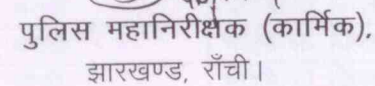 पुलिस महानिरीक्षक (कार्मिक),
झारखण्ड, राँची।